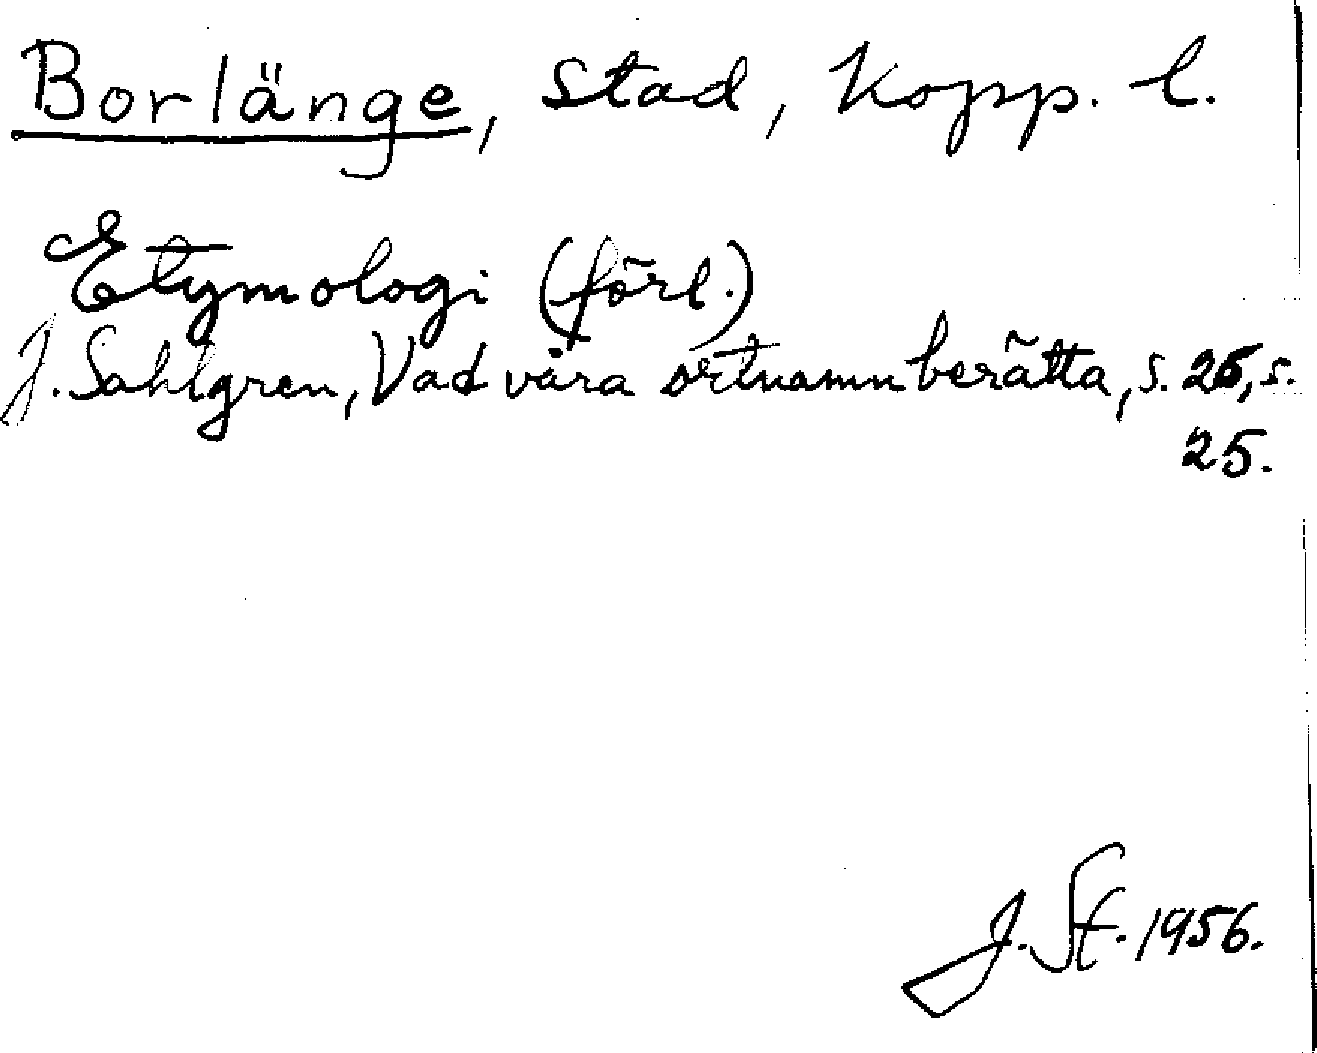 Borlänge, stad, Kopp. l.
Etymologi (förl.)
J. Sahlgren, Vad våra ortnamn berätta, s. 26, s.
25.
J. St. 1956.